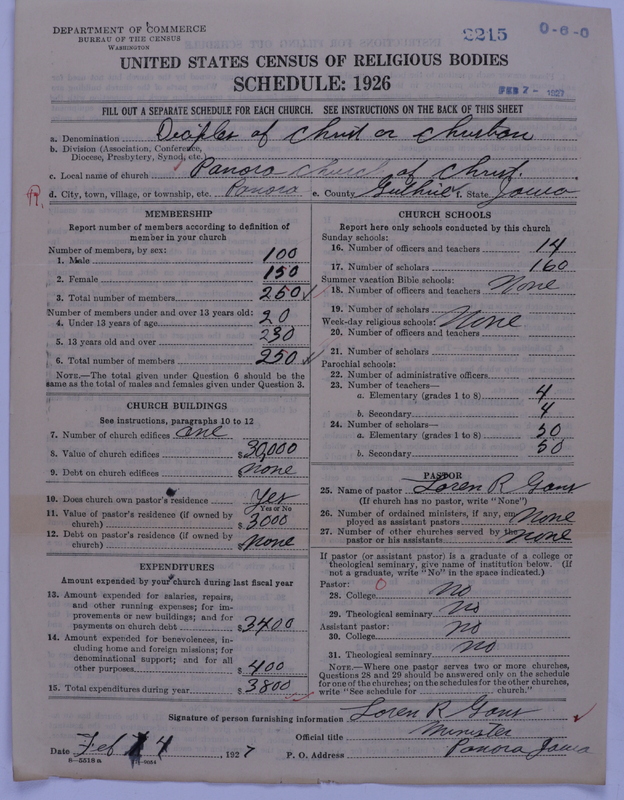 DEPARTMENT OF COMMERCE
BUREAU OF THE CENSUS
WASHINGTON
2215
0-6-0
UNITED STATES CENSUS OF RELIGIOUS BODIES
SCHEDULE: 1926
FEB 7 - 1927
FILL OUT A SEPARATE SCHEDULE FOR EACH CHURCH. SEE INSTRUCTIONS ON THE BACK OF THIS SHEET
a. Denomination Disiples of Christ or Christian
b. Division (Association, Conference, Diocese, Presbytery, Synod, etc.)
c. Local name of church Panora Church of Christ.
d. City, town, village, or township, etc. Panora e. County Guthrie f. State Iowa
MEMBERSHIP
Report number of members according to definition of
member in your church
Number of members, by sex:
1. Male 100
2. Female 150
3. Total number of members 250
Number of members under and over 13 years old:
4. Under 13 years of age 20
5. 13 years old and over 230
6. Total number of members 250
NOTE.—The total given under Question 6 should be
same as the total of males and females given under Question 3.
CHURCH BUILDINGS
See instructions, paragraphs 10 to 12
7. Number of church edifices one
8. Value of church edifices $30,000
9. Debt on church edifices $none
10. Does church own pastor's residence Yes
Yes or No
11. Value of pastor's residence (if owned by
church) $3000
12. Debt on pastor's residence (if owned by
church) $None
EXPENDITURES
Amount expended by your church during last fiscal year
13. Amount expended for salaries, repairs,
and other running expenses; for im-
provements or new buildings; and for
payments on church debt $3400
14. Amount expended for benevolences, in-
cluding home and foreign missions; for
denominational support; and for all
other purposes $400
15. Total expenditures during year $3800
CHURCH SCHOOLS
Report here only schools conducted by this church
Sunday schools:
16. Number of officers and teachers 14
17. Number of scholars 160
Summer vacation Bible schools:
18. Number of officers and teachers None
19. Number of scholars
Week-day religious schools: None
20. Number of officers and teachers
21. Number of scholars
Parochial schools:
22. Number of administrative officers
23. Number of teachers—
a. Elementary (grades 1 to 8) 4
b. Secondary 4
24. Number of scholars—
a. Elementary (grades 1 to 8) 50
b. Secondary 50
PASTOR
25. Name of pastor Loren R Gans
(If church has no pastor, write "None")
26. Number of ordained ministers, if any, em-
ployed as assistant pastors None
27. Number of other churches served by the
pastor or his assistants none
If pastor (or assistant pastor) is a graduate of a college or
theological seminary, give name of institution below. (If
not a graduate, write "No" in the space indicated.)
Pastor:
28. College no
29. Theological seminary no
Assistant pastor:
30. College no
31. Theological seminary no
NOTE.—Where one pastor serves two or more churches,
Questions 28 and 29 should be answered only on the schedule
for one of the churches; on the schedules for the other churches,
write "See schedule for church."
Signature of person furnishing information Loren R Gans
Official title Minister
Date Feb 4 1927 P. O. Address Panora Iowa